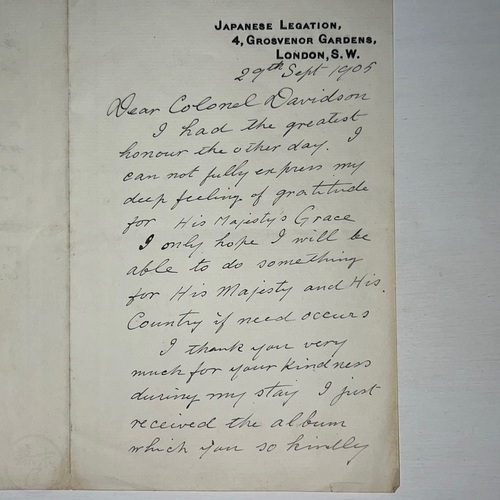 Japanese Legation,
4, Grosvenor Gardens,
London, S.W.
29th Sept 1905
Dear Colonel Davidson
I had the greatest
honour the other day. I
can not fully express my
deep feeling of gratitude
for His Majesty's Grace
I only hope I will be
able to do something
for His Majesty and His
Country if need occurs
I thank you very
much for your kindness
during my stay I just
received the album
which you so kindly